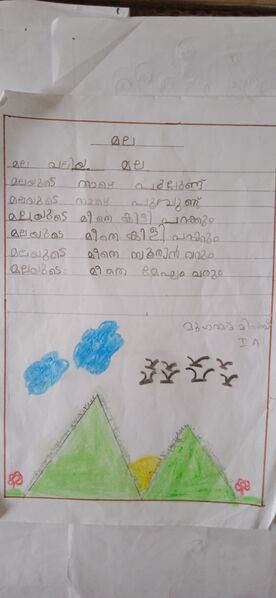 മല
മല വലിയ മല
മലയുടെ താഴെ പുല്ലുണ്ട്
മലയുടെ താഴെ പൂവുണ്ട്
മലയുടെ മീതെ കിളി പറക്കും
മലയുടെ മീതെ കിളി പറക്കും
മലയുടെ മീതെ സൂര്യൻ വരും
മലയുടെ മീതെ മേഘം വരും
II A